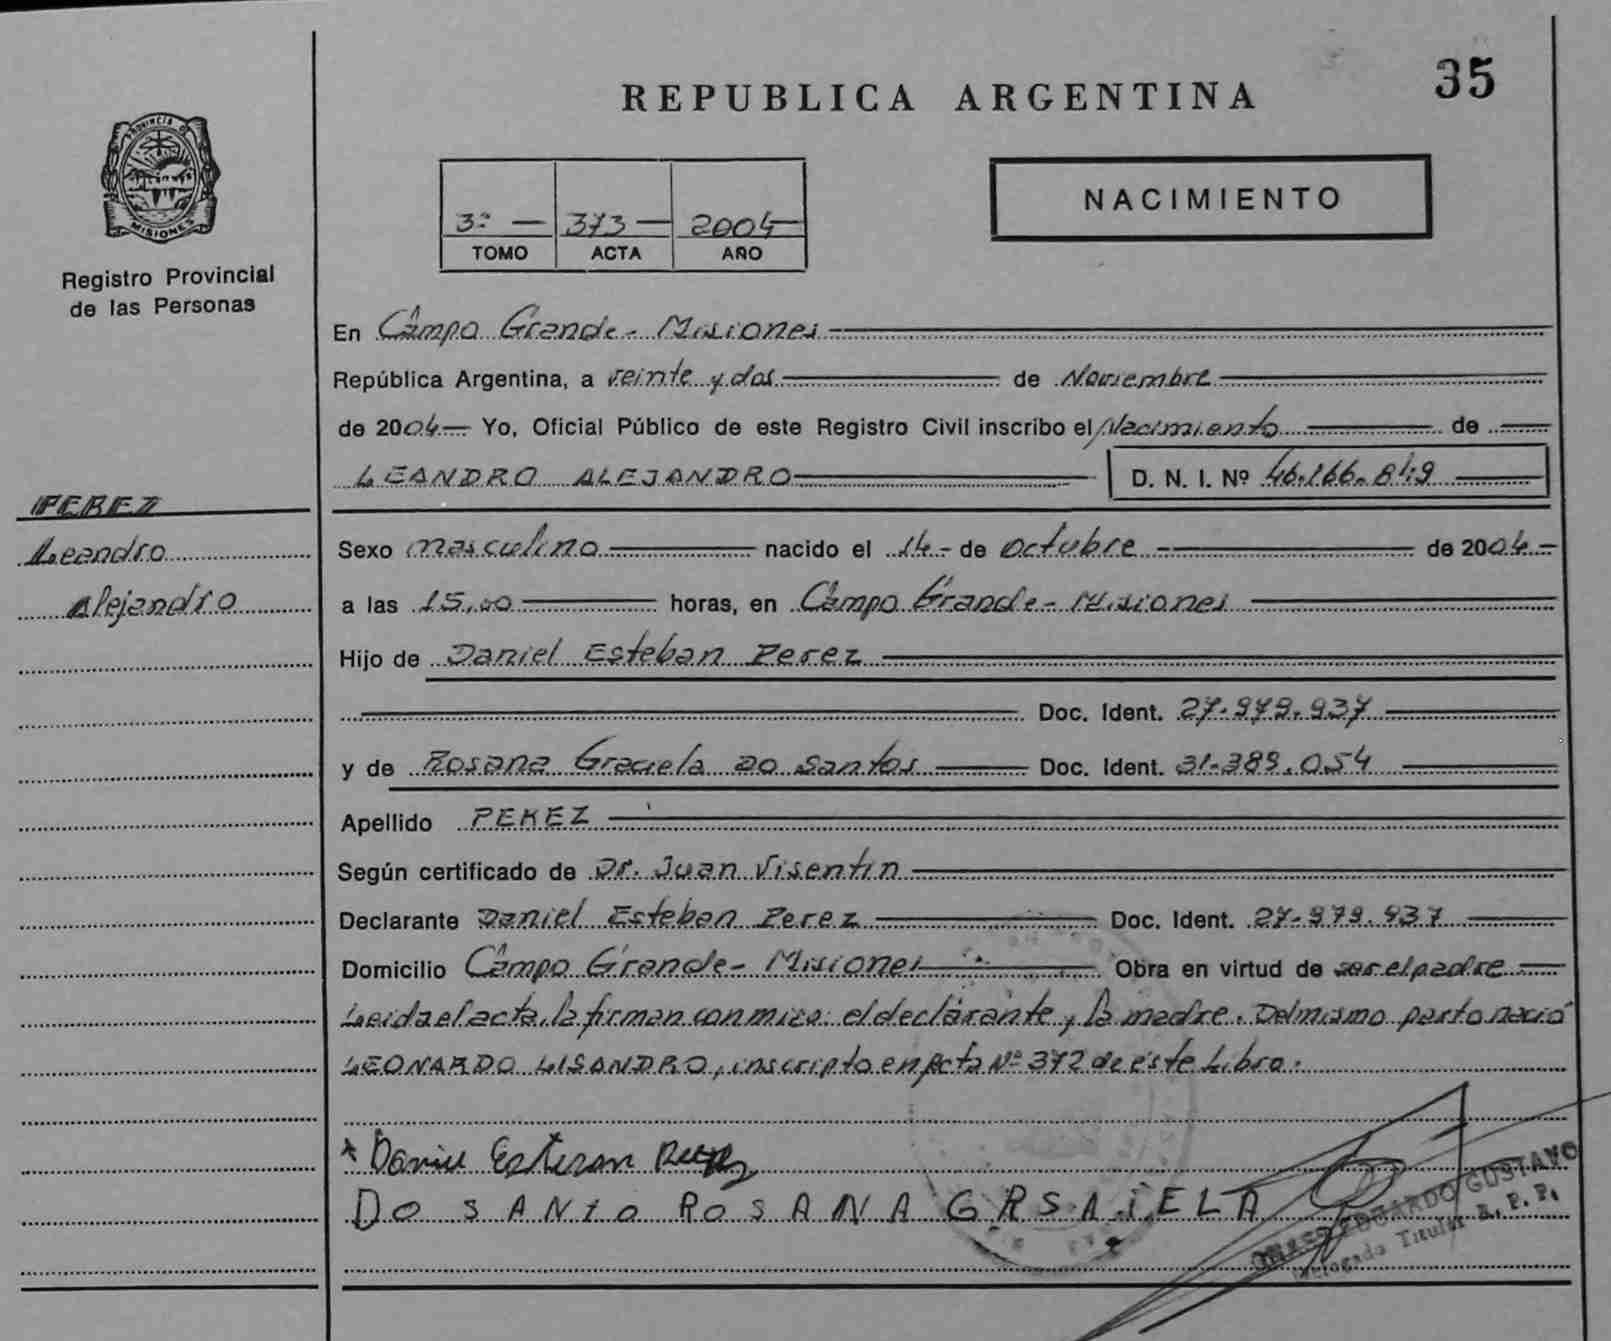 35
REPUBLICA ARGENTINA
NACIMIENTO
PROVINCIA DE
MISIONES
Registro Provincial
de las Personas
3º — 373 — 2004
TOMO ACTA AÑO
En Campo Grande - Misiones
República Argentina, a veinte y dos de Noviembre
de 2004 Yo, Oficial Público de este Registro Civil inscribo el Nacimiento de
LEANDRO ALEJANDRO D. N. I. Nº 46.166.849
PEREZ
Leandro
Alejandro
Sexo masculino nacido el 14 - de Octubre de 2004
a las 15,00 horas, en Campo Grande - Misiones
Hijo de Daniel Esteban Perez
Doc. Ident. 27.979.937
y de Rosana Graciela Do Santos Doc. Ident. 31.389.054
Apellido PEREZ
Según certificado de Dr. Juan Visentin
Declarante Daniel Esteban Perez Doc. Ident. 27.979.937
Domicilio Campo Grande - Misiones Obra en virtud de ser el padre
Leida el acta, la firman conmigo: el declarante y la madre. Del mismo parto nació
LEONARDO LISANDRO, inscripto en Acta Nº 372 de este Libro.
Daniel Esteban Perez
DO SANTO ROSANA GRSAIELA
EDUARDO GUSTAVO
Delegado Titular R. P. P.